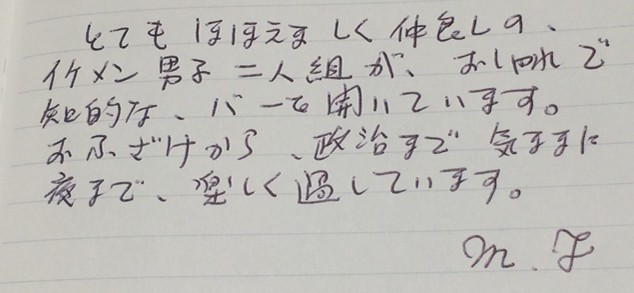 とてもほほえましく仲良しの、
イケメン男子二人組が、おしゃれで
知的な、バーを開いています。
おふざけから、政治まで気ままに
夜まで、楽しく過しています。
M.F